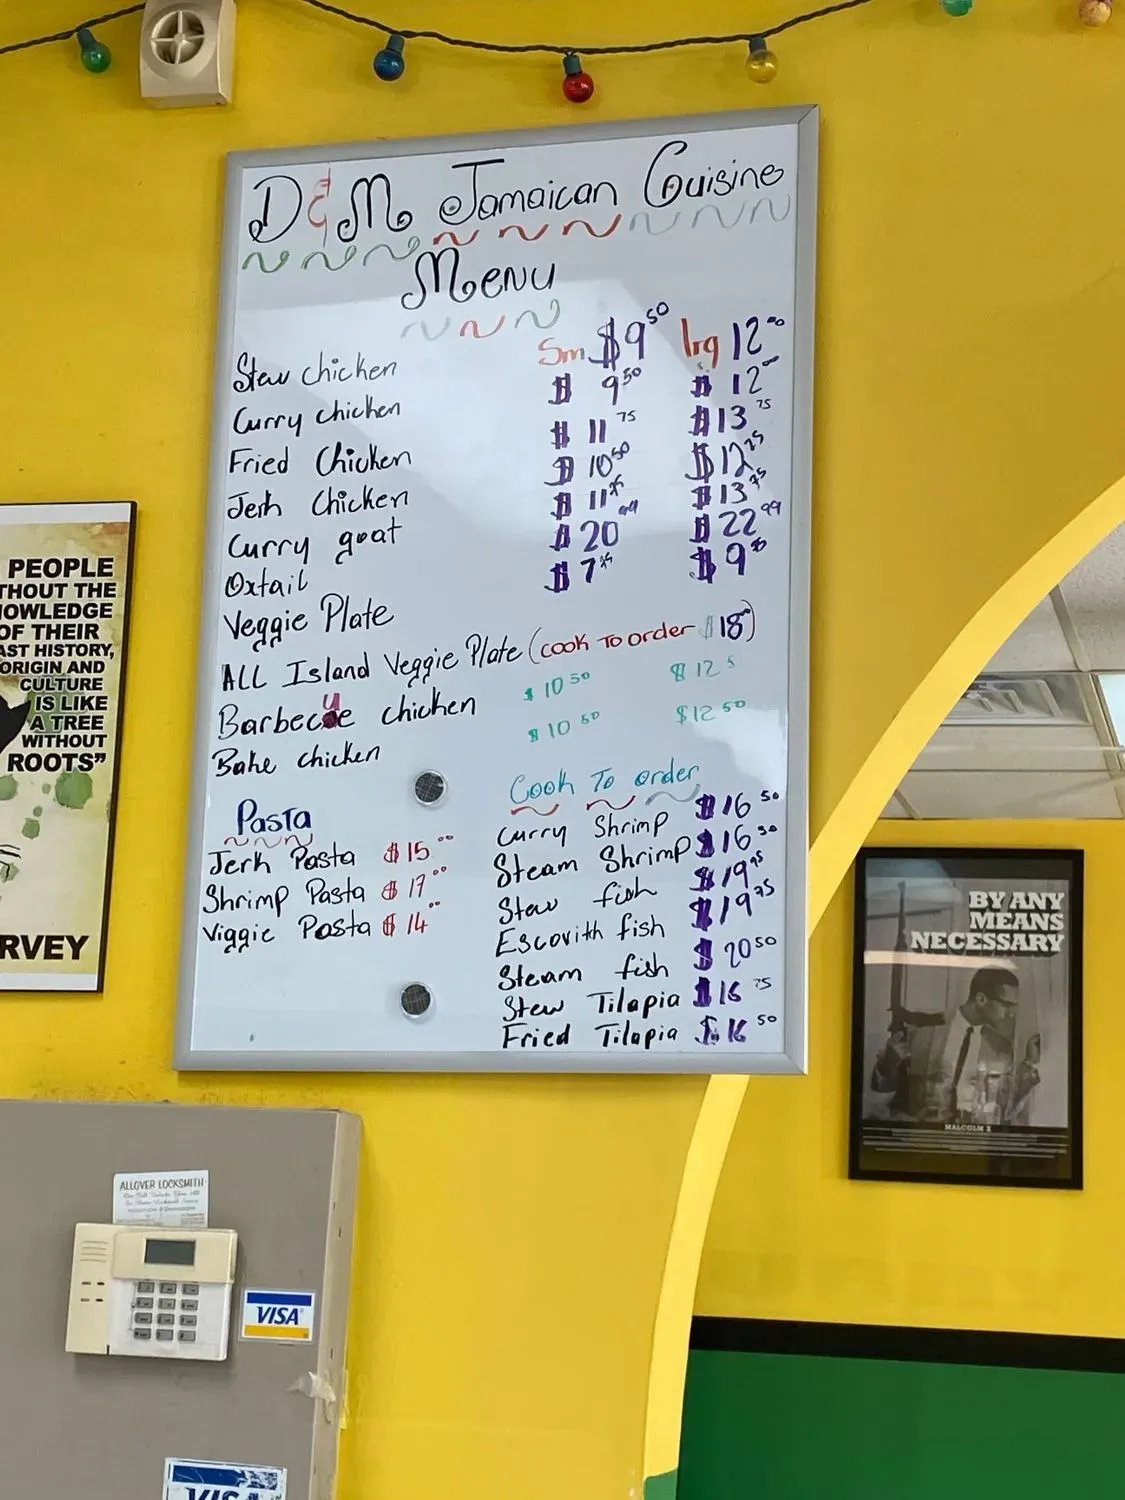 D & M Jamaican Cuisine
Menu
Stew chicken Sm $9 50 lrg 12 00
Curry chicken $ 9 50 $ 12 00
Fried Chicken $ 11 75 $13 75
Jerk Chicken $ 10 50 $12 25
Curry goat $ 11 75 $13 75
Oxtail $ 20 99 $ 22 99
Veggie Plate $ 7 75 $ 9
ALL Island Veggie Plate (cook To order $18)
Barbecue chicken $ 10 50 $ 12 5
Bake chicken $ 10 50 $12 50
Pasta
Jerk Pasta $15 00
Shrimp Pasta $17 00
Viggie Pasta $14 00
Cook To order
Curry Shrimp $16 50
Steam Shrimp $16 50
Stew fish $19 75
Escovith fish $19 75
Steam fish $ 20 50
Stew Tilapia $16 75
Fried Tilapia $16 50
PEOPLE
THOUT THE
NOWLEDGE
OF THEIR
AST HISTORY,
ORIGIN AND
CULTURE
IS LIKE
A TREE
WITHOUT
ROOTS"
RVEY
BY ANY
MEANS
NECESSARY
MALCOLM X
ALLOVER LOCKSMITH
VISA
VISA